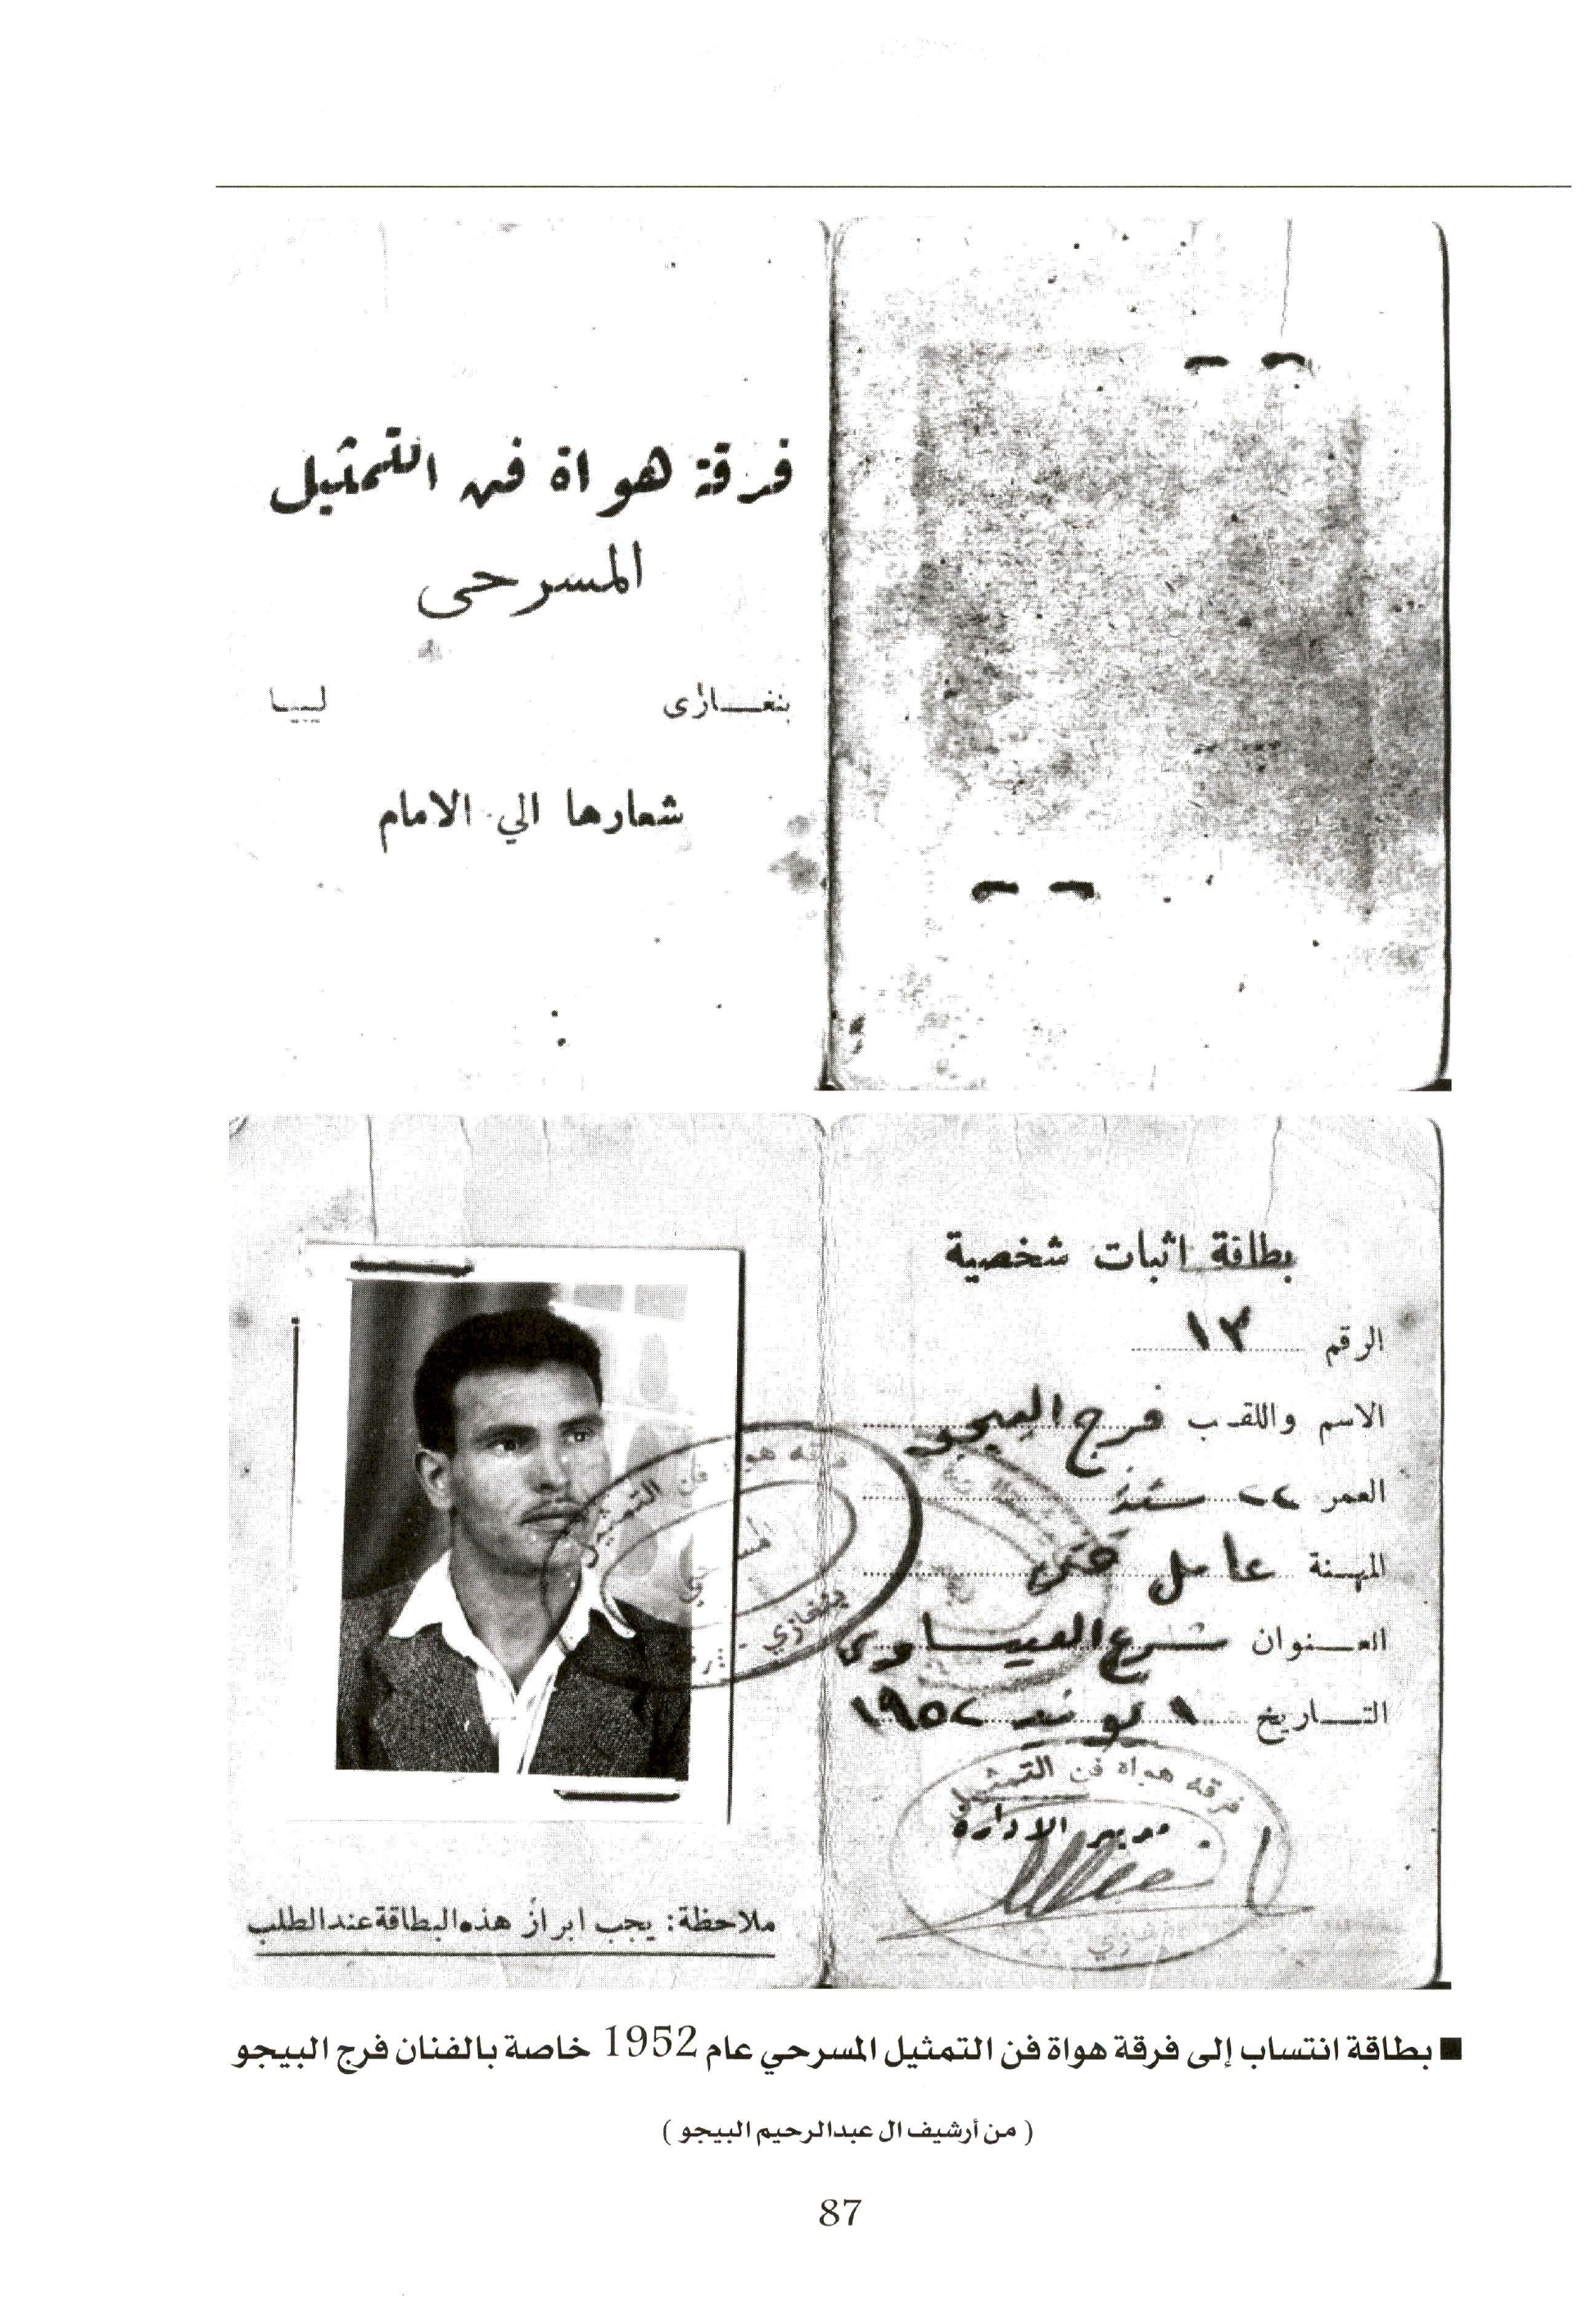 فرقة هواة فن التمثيل
المسرحى
بنغــازى ليبيا
شعارها الي الامام
بطاقة اثبات شخصية
الرقم ١٣
الاسم واللقب فرج البيجو
العمر ٢٢ سنة
المهنة عامل فنى
العـنوان شرع العيساوى
التـاريخ ١ يونيه ١٩٥٢
فرقه هواة فن التمثيل
بنغازي
فرقه هواة فن التمثيل
مدير الادارة
ملاحظة: يجب ابراز هذه البطاقة عند الطلب
■ بطاقة انتساب إلى فرقة هواة فن التمثيل المسرحي عام 1952 خاصة بالفنان فرج البيجو
( من أرشيف ال عبدالرحيم البيجو )
87